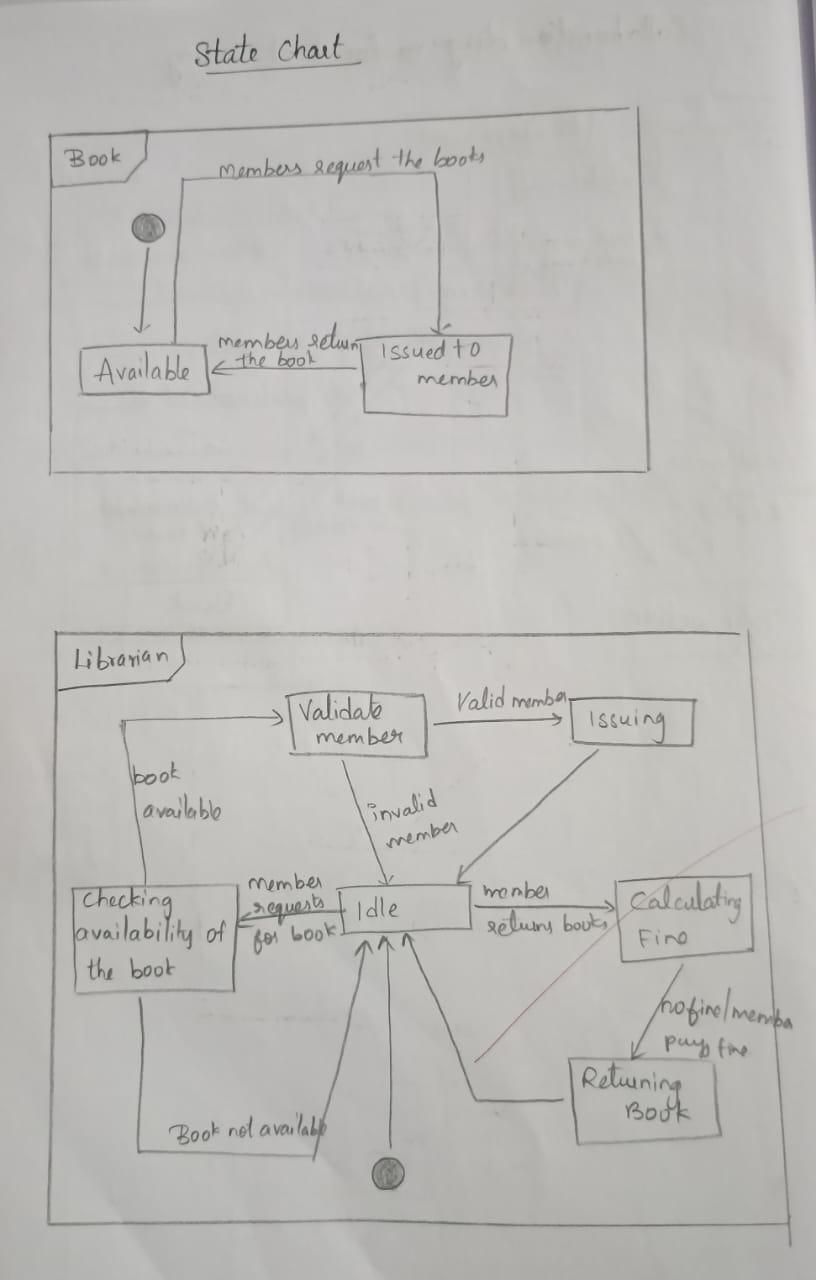 State Chart
Book
Members request the books
members return
the book
Available
Issued to
member
Librarian
Validate
member
Valid member
Issuing
book
available
invalid
member
Checking
availability of
the book
member
requests
for book
Idle
member
returns books
Calculating
Fine
no fine/member
pays fine
Returning
Book
Book not available